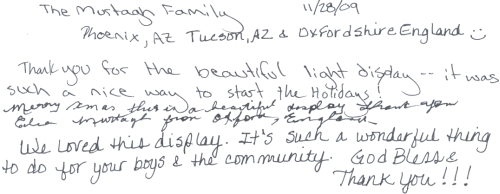 The Murtagh Family 11/28/09
Phoenix, AZ Tucson, AZ & Oxfordshire England
Thank you for the beautiful light display -- it was
such a nice way to start the Holidays!
Merry Xmas this is a beautiful display
Murtagh from Oxford, England
We loved this display. It's such a wonderful thing
to do for your boys & the community. God Bless &
Thank you!!!